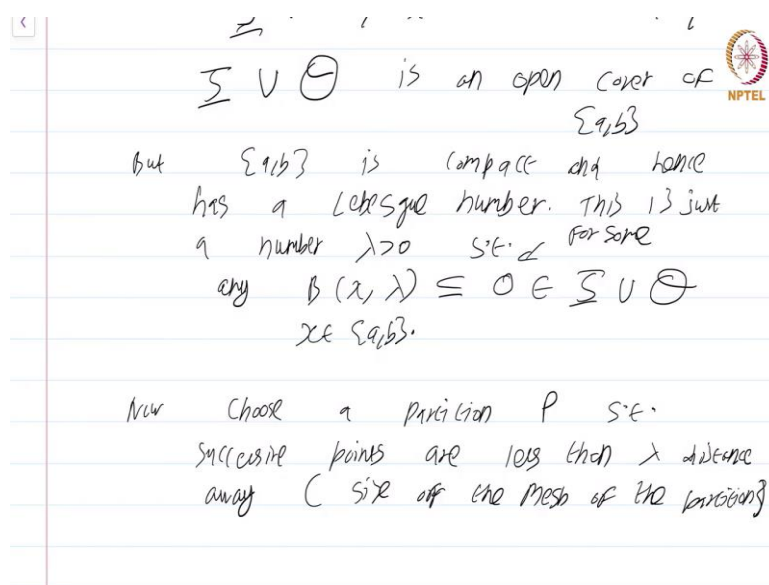 I ∪ Θ is an open cover of
NPTEL
{a,b}
But {a,b} is compact and hence
has a Lebesgue number. This is just
a number λ>0 s.t. for some
any B(x, λ) ⊆ O ∈ I ∪ Θ
x∈ {a,b}.
Now choose a partition P s.t.
successive points are less than λ distance
away ( size off the mesh of the partition}